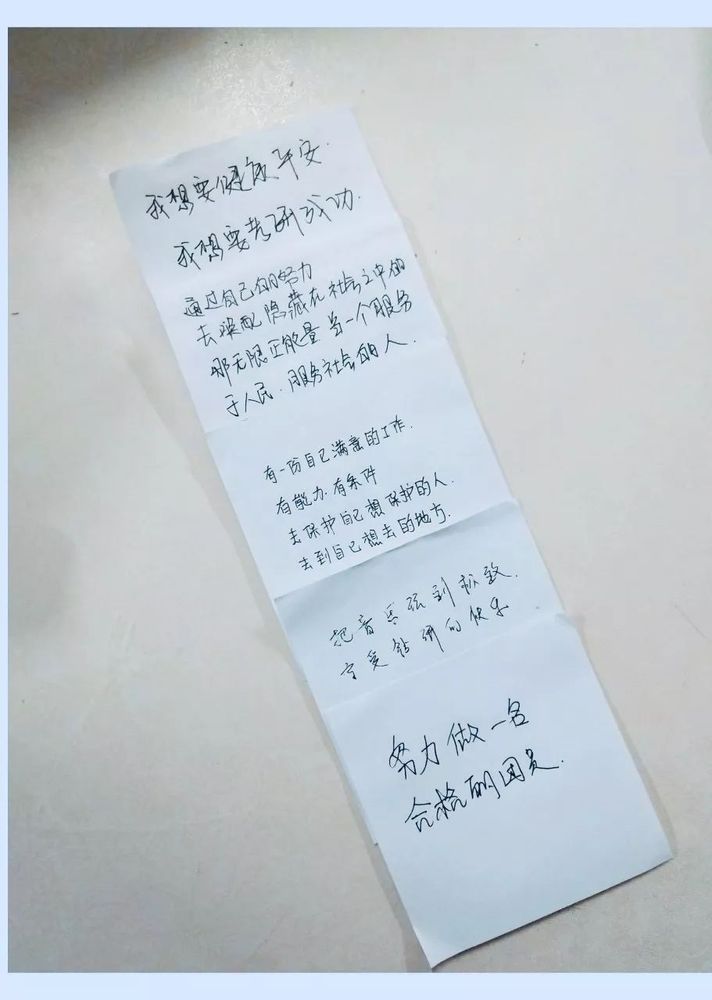 我想要健康平安.
我想要考研成功.
通过自己的努力
去唤醒隐藏在社会之中的
那无限正能量 当一个服务
于人民.服务社会的人.
有一份自己满意的工作.
有能力.有条件
去保护自己想保护的人.
去到自己想去的地方.
把音乐玩到极致.
享受钻研的快乐
努力做一名
合格的团员.